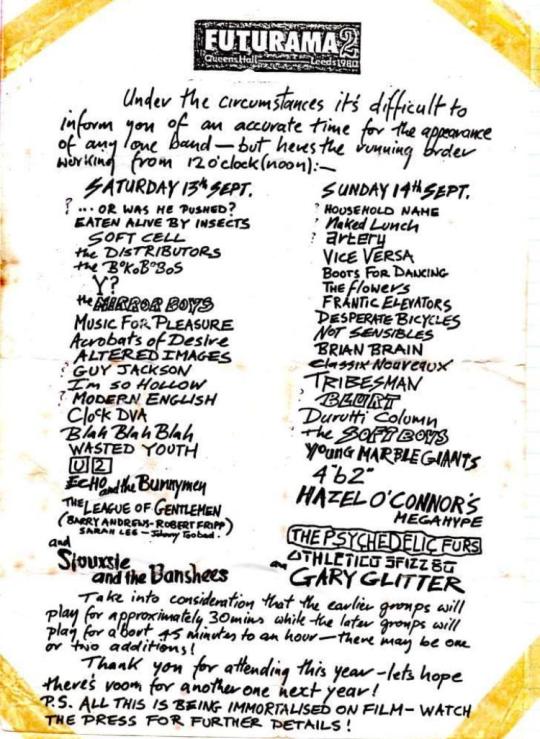 FUTURAMA 2
Queens Hall Leeds 1980
Under the circumstances it's difficult to
inform you of an accurate time for the appearance
of any one band — but heres the running order
working from 12 o'clock (noon):—
SATURDAY 13th SEPT.
? ... OR WAS HE PUSHED?
EATEN ALIVE BY INSECTS
SOFT CELL
the DISTRIBUTORS
the B°K°B°B°S
Y?
the MIRROR BOYS
MUSIC FOR PLEASURE
Acrobats of Desire
ALTERED IMAGES
? GUY JACKSON
I'm so HOLLOW
? MODERN ENGLISH
Clock DVA
Blah Blah Blah
WASTED YOUTH
U2
ECHO and the Bunnymen
THE LEAGUE OF GENTLEMEN
(BARRY ANDREWS - ROBERT FRIPP)
SARAH LEE - Johnny Toobad.
and
Siouxsie
and the Banshees
SUNDAY 14th SEPT.
? HOUSEHOLD NAME
? Naked Lunch
? artery
VICE VERSA
BOOTS FOR DANCING
THE flowers
FRANTIC ELEVATORS
DESPERATE BICYCLES
NOT SENSIBLES
BRIAN BRAIN
Classix Nouveaux
TRIBESMAN
? BLURT
Durutti Column
the SOFT BOYS
YOUNG MARBLE GIANTS
4"b2"
HAZEL O'CONNOR'S
MEGAHYPE
THE PSYCHEDELIC FURS
ATHLETICO SPIZZ 80
and GARY GLITTER
Take into consideration that the earlier groups will
play for approximately 30mins while the later groups will
play for about 45 minutes to an hour — there may be one
or two additions!
Thank you for attending this year - lets hope
theres room for another one next year!
P.S. ALL THIS IS BEING IMMORTALISED ON FILM - WATCH
THE PRESS FOR FURTHER DETAILS!